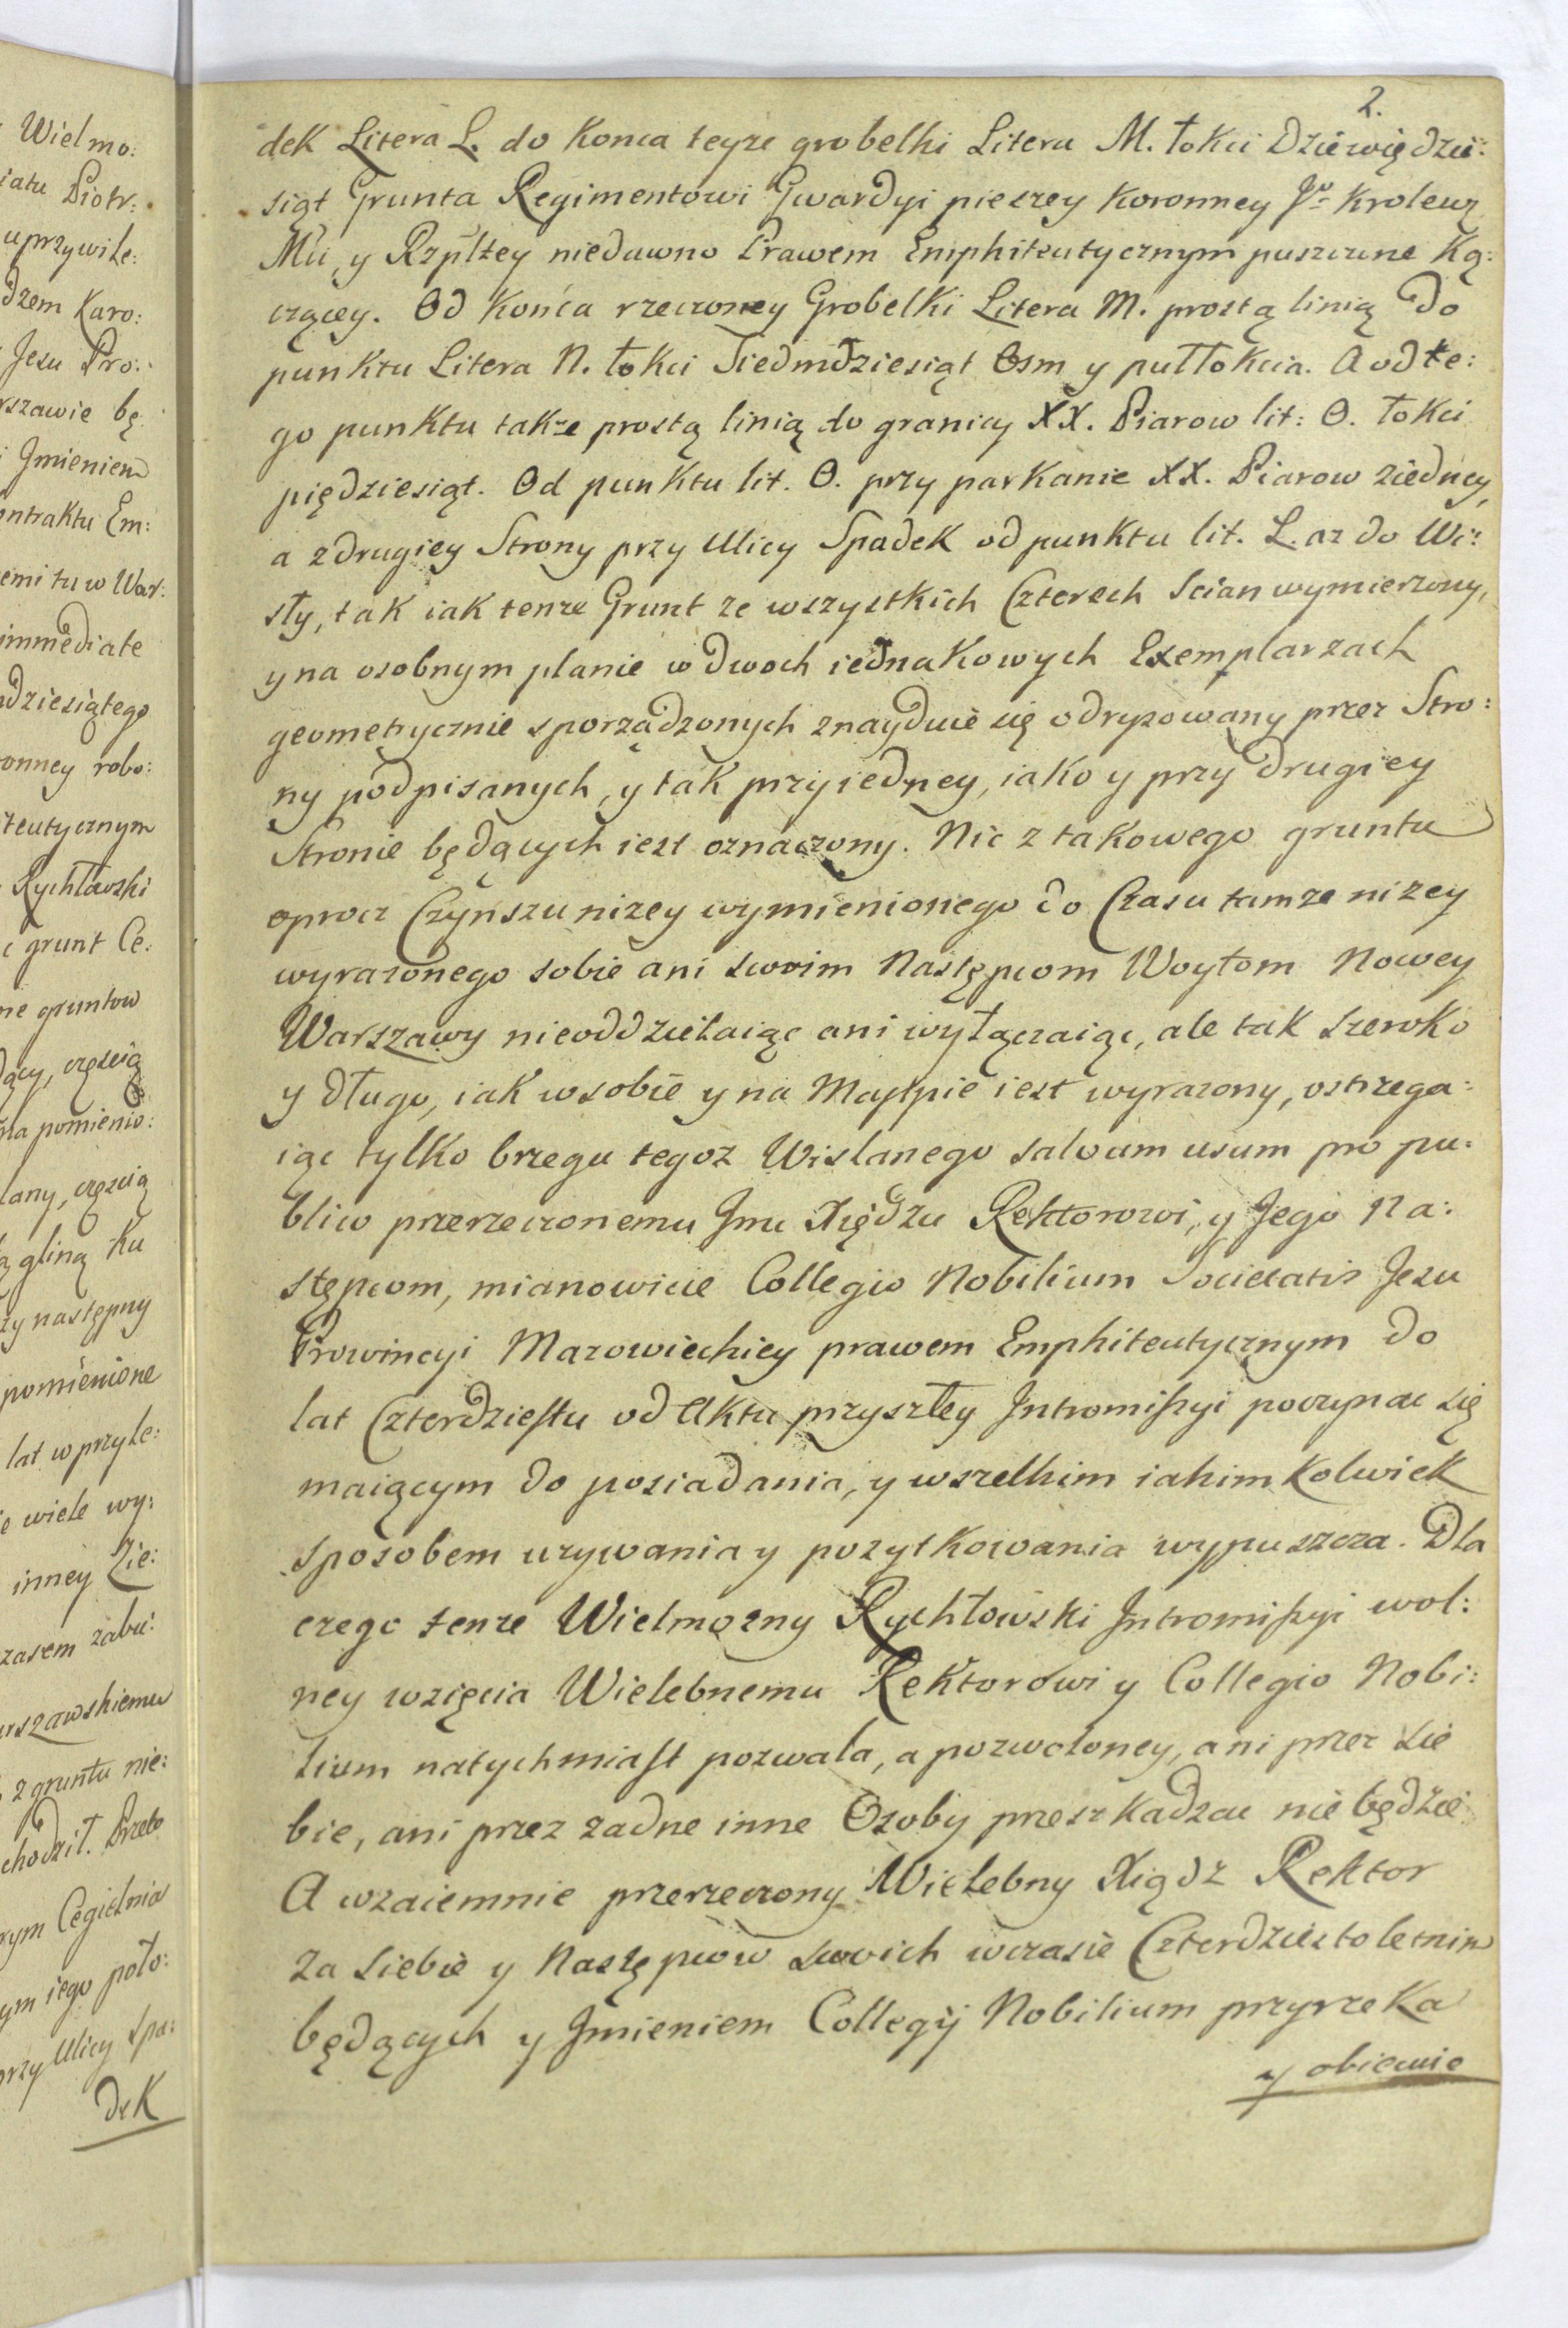 Wielmo:
iatu Piotr:
uprzywile:
dzem Karo:
Jesu Pro:
rszawie bę
i Jmieniem
ontraktu Em:
emi tu w War:
immediate
dziesiątego
onney robo:
teutycznym
Rychłowski
i grunt Ce:
ne gruntow
dący, częscią
na pomienio:
lany, częscią
ą gliną Ku
zy następny
pomienione
lat w przyle:
e wiele wy:
inney Zie:
zasem zabu:
rszawskiemu
z gruntu nie:
chodził. Przeto
rym Cegielnia
ym iego poło:
przy Ulicy Spa:
dek
2.
dek Litera L. do Konca teyze grobelki Litera M. łokci Dziewiędzie:
siąt Grunta Regimentowi Gwardyi pieszey Koronney Jº Krolewz
Mci, y Rzpltey niedawno Prawem Emphiteutycznym puszczone Ką:
czącey. Od Końca rzeczoney Grobelki Litera M. prostą linią do
punktu Litera N. łokci Siedmdziesiąt Osm y pułłokcia. A od te:
go punktu takze prostą linią do granicy XX. Piarow lit: O. łokci
piędziesiąt. Od punktu lit. O. przy parkanie XX. Piarow ziedney,
a zdrugiey Strony przy Ulicy Spadek od punktu lit. L. az do Wi:
sły, tak iak tenze Grunt ze wszystkich Czterech Scian wymierzony,
y na osobnym planie w dwoch iednakowych Exemplarzach
geometrycznie sporządzonych znayduie się odryzowany przez Stro:
ny podpisanych, y tak przy iedney, iako y przy drugiey
Stronie będących iest oznaczony. Nic z takowego gruntu
oprocz Czynszu nizey wymienionego do Czasu tamze nizey
wyrazonego sobie ani swoim Następcom Woytom Nowey
Warszawy nieoddzielaiąc ani wyłączaiąc, ale tak szeroko
y długo, iak w sobie y na Mappie iest wyrazony, ostrzega:
iąc tylko brzegu tegoz Wislanego salvum usum pro pu:
blico przerzeczonemu Jmc Xiędzu Rektorowi, y Jego Na:
stępcom, mianowicie Collegio Nobilium Societatis Jesu
Prowincyi Mazowieckiey prawem Emphiteutycznym do
lat Czterdziestu od Aktu przyszłey Intromissyi poczynac się
maiącym do posiadania, y wszelkim iakimkolwiek
sposobem uzywania y pozytkowania wypuszcza. Dla
czego tenze Wielmozny Rychłowski Intromissyi wol:
ney wzięcia Wielebnemu Rektorowi y Collegio Nobi:
lium natychmiast pozwala, a pozwoloney, ani przez sie
bie, ani przez zadne inne Osoby przeszkadzac nie będzie
A wzaiemnie przerzeczony Wielebny Xiądz Rektor
za siebie y Następcow swoich w czasie Czterdziestoletnim
będących y Jmieniem Collegij Nobilium przyrzeka
y obiecuie